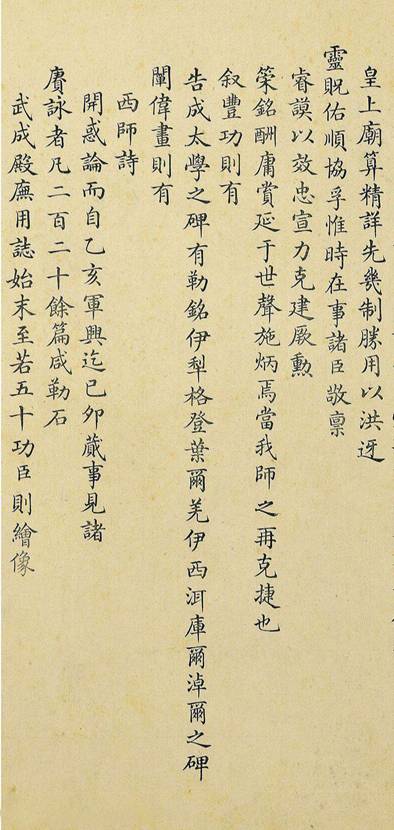 皇上廟算精詳先幾制勝用以洪迓
靈貺佑順協孚惟時在事諸臣敬禀
睿謨以效忠宣力克建厥勲
策銘酬庸賞延于世聲施炳焉當我師之再克捷也
叙豐功則有
告成太學之碑有勒銘伊犁格登葉爾羌伊西洱庫爾淖爾之碑
闡偉畫則有
西師詩
開惑論而自乙亥軍興迄己卯蕆事見諸
賡詠者凡二百二十餘篇咸勒石
武成殿廡用誌始末至若五十功臣則繪像